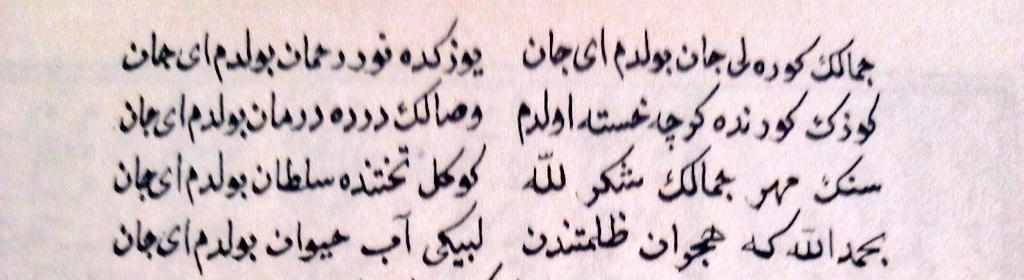 جمالك كوره لی جان بولدم ای جان یوزکده نور رحمان بولدم ای جان
كوزك كورنده كوچه خسته اولدم وصالك درده درمان بولدم ای جان
سنك مهر جمالك شكر لله كوكل تختنده سلطان بولدم ای جان
بحمدالله كه هجران ظلمتندن لبیكی آب حیوان بولدم ای جان